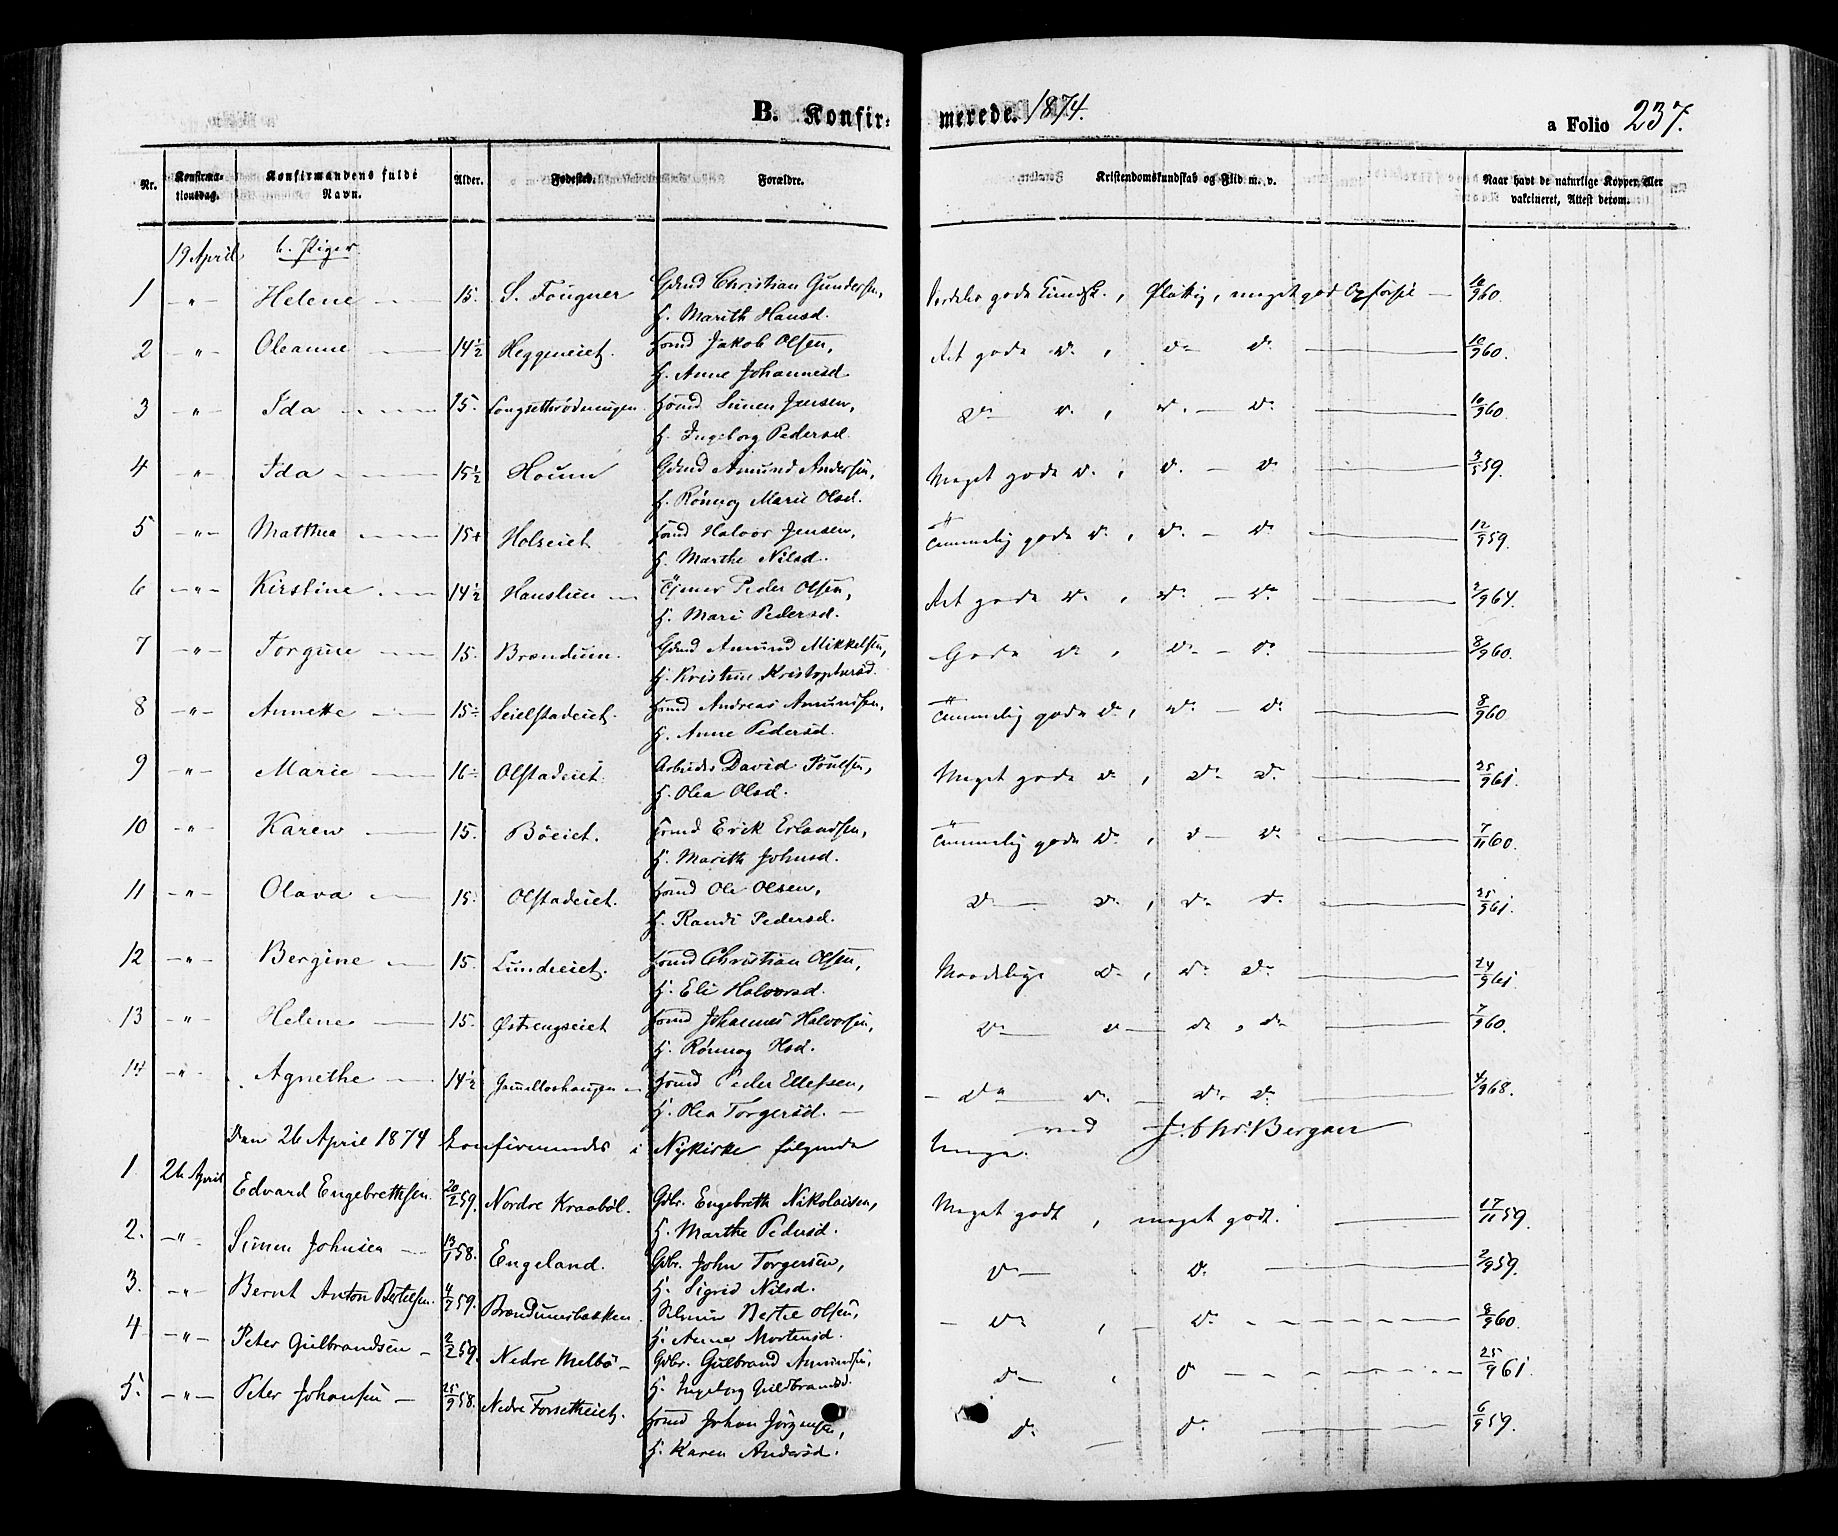 B. Konfirmerede. 1874. a Folio 237.
Nr. Konfirmationsdag. Konfirmandens fulde Navn. Alder. Fødested. Forældre. Kristendomskundskab og Flid m. v. Naar havt de naturlige Kopper, eller vakcineret, Attest derom.
19 April b. Piger
1 -"- Helene 15. S. Fougner Gbmd Christian Gundersen, gode Kundsk., flittig, meget god Opførsel 10/9 60.
H. Marith Hansd.
2 -"- Oleanne 14½ Heggeneiet. Jakob Olsen, Ret gode do, do do 10/9 60.
H. Anne Johannesd.
3 -"- Ida 15. Simen Jensen, do do, do - do 10/9 60
H. Ingeborg Pedersd.
4 -"- Ida 15½ Houm Gbmd Amund Andersen, Meget gode do, do - do 3/5 59.
H. Rönnog Marie Olsd.
5 -"- Matthea 15 Holseiet Halvor Jensen, Temmelig gode do, do - do 12/9 59.
H. Marthe Nilsd.
6 -"- Kirstine 14½ Hanslien Tjener Peder Olsen, Ret gode do, do - do 2/9 64.
H. Mari Pedersd.
7 -"- Torgine 15. Brændum. Gbmd Amund Mikkelsen, Gode do, do - do 8/9 60.
H. Kristine Kristophersd.
8 -"- Annette 15 Seielstadeiet. Andreas Amundsen, Temmelig gode do, do - do 8/9 60
H. Anne Pedersd.
9 -"- Marie 16 Olstadeiet. Arbeider David Poulsen, Meget gode do, do do 25/9 61.
H. Olea Olsd.
10 -"- Karen 15. Böeiet. Erik Erlandsen, Temmelig gode do, do - do 7/11 60.
H. Marith Johnsd.
11 -"- Olava 15. Olstadeiet. Ole Olsen, do do, do do 25/9 61.
H. Randi Pedersd.
12 -"- Bergine 15. Lundeeiet. Christian Olsen, Maadelige do, do do 24/9 61
H. Eli Halvorsd.
13 -"- Helene 15. Østrengseiet Johannes Halvorsen, do do do, do 7/9 60.
H. Rönnog Hsd.
14 -"- Agnethe 14½ Peder Ellefsen, do do do, do 4/9 68.
H. Olea Torgersd.
Den 26 April 1874 konfirmeredes i Nykirke følgende Unge. ved J. Chr. Bergan
1. 26 April Edvard Engebrethsen. 20/2 59. Nordre Kraabøl. Gbr. Engebreth Nikolaisen, Meget godt, meget godt. 17/11 59.
H. Marthe Pedersd.
2. -"- Simen Johnsen 13/1 58. Engeland. Gbr. John Torgersen, do do 2/9 59.
H. Sigrid Nilsd.
3. -"- Bernt Anton Bertelsen. 4/9 59. Brændumsbakken. Bertel Olsen, do, do 8/9 60.
H. Anne Mortensd.
4 -"- Peter Gulbrandsen 2/2 59. Nedre Melbö Gbr. Gulbrand Amundsen, do, do 25/9 61.
H. Ingeborg Guldbrandsd.
5. -"- Peter Johansen 25/9 58. Nedre Forsetheiet. Johan Jörgensen, do do 6/9 59.
H. Karen Andersd.